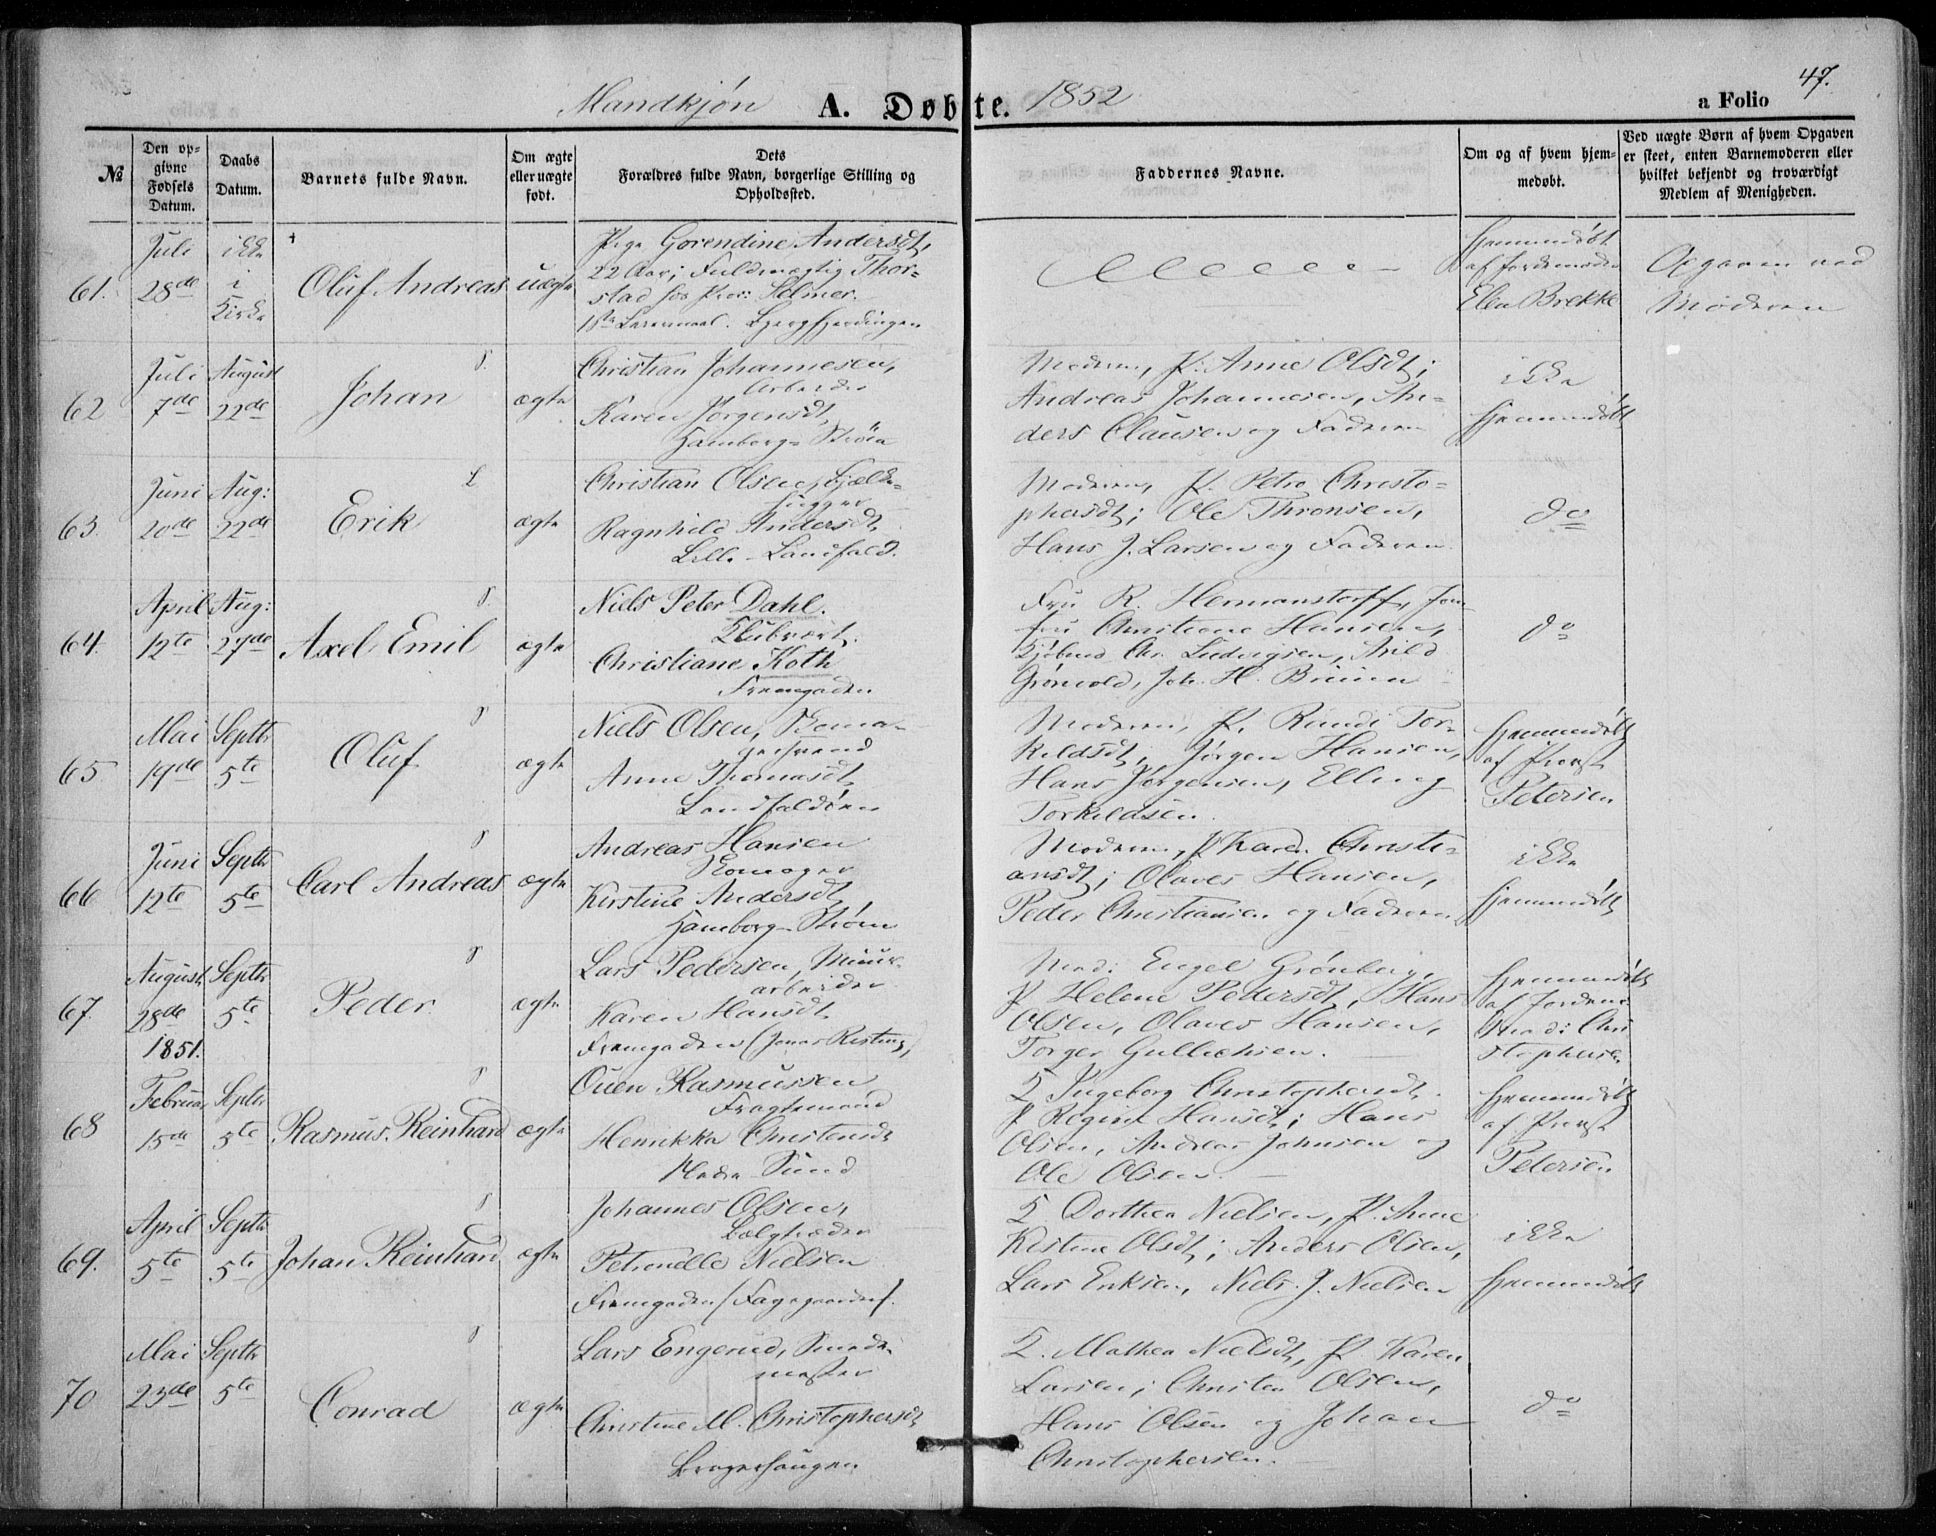 Mandkjøn A. Døbte. 1852
47.
a Folio
№
Den op-
givne
Fødsels
Datum.
Daabs
Datum.
Barnets fulde Navn.
Om ægte
eller uægte
født.
Dets
Forældres fulde Navn, borgerlige Stilling og
Opholdssted.
Faddernes Navne.
Om og af hvem hjem-
medøbt.
Ved uægte Børn af hvem Opgaven
er skeet, enten Barnemoderen eller
hvilket bekjendt og troværdigt
Medlem af Menigheden.
61.
Juli
28de
ikke
i
Kirke
Oluf Andreas
uægte
Pige Gorendine Andersdt,
22 Aar; Fuldmægtig Thor-
stad hos Selmer.
1ste Leiermaal.
Hjemmedøbt
af Jordemoder
Elen Brekke
Opgaven ved
Moderen
62
Juli
7de
August
22de
Johan
ægte
Christian Johannesen,
Arbeider
Karen Jørgensdt,
Hamborg-Strøm
Moderen, P. Anne Olsdt;
Andreas Johannesen, An-
ders Clausen og Faderen
ikke
Hjemmedøbt
63.
Juni
20de
Aug:
22de
Erik
ægte
Christian Olsen, Bjælke-
hugger
Ragnhild Andersdt,
Lille-Landfald.
Moderen, P. Petro Christo-
phersdt; Ole Thronsen,
Hans J. Larsen og Faderen.
do
64.
April
12te
Aug:
27de
Axel Emil
ægte
Niels Peter Dahl.
Klubvært.
Christiane Koth
Fremgaden
Fru R. Hermanstorff, Jom-
fru Christiane Hansen,
Kjøbmd Chr. Ludvigsen, Arild
Grønvold, Joh. H. Bruun
do
65
Mai
19de
Septbr
5te
Oluf
ægte
Niels Olsen, Skoma-
gersvend
Anne Thomasdt,
Landfaldøen
Moderen, P. Randi Tor-
kildsdt, Jørgen Hansen,
Hans Jørgensen, Elling
Torkildsen.
Hjemmedøbt
af Provst
Petersen
66
Juni
12te
Septbr
5te
Carl Andreas
ægte
Andreas Hansen
Skomager
Kirstine Andersdt,
Hamborg-Strøm
Moderen, P Karen Christi-
ansdt; Olaves Hansen,
Peder Christiansen og Faderen
ikke
Hjemmedøbt
67.
August
28de
1851.
Septbr
5te
Peder
ægte
Lars Pedersen, Muur-
arbeider
Karen Hansdt,
Fremgaden (Jonas Risting)
Mad: Engel Grønberg,
P Helene Pedersdt, Hans
Olsen, Olaves Hansen,
Torger Gulliksen.
Hjemmedøbt
af Jordem:
Mad: Chri
stophersen
68
Februar
15de
Septbr
5te
Rasmus Reinhard
ægte
Ouen Rasmussen
Fragtemand
Henrikka Christensdt
Nedre Sund
K Ingeborg Christophersdt.
P Regine Hansdt; Hans
Olsen, Andreas Johnsen og
Ole Olsen.
Hjemmedøbt
af Provst
Petersen
69.
April
5te
Septbr
5te
Johan Reinhard
ægte
Johannes Olsen,
Bælgtræder
Petronelle Nielsen
Fremgaden
K Dorthea Nielsen, P. Anne
Kistine Olsdt; Anders Olsen,
Lars Eriksen, Niels J. Nielsen
ikke
Hjemmedøbt
70
Mai
23de
Septbr
5te
Conrad
ægte
Lars Engerud, Smede-
mester
Christine M. Christophersdt
Bragerhaugen
K. Mathea Nielsdt, P. Karen
Larsen; Christen Olsen,
Hans Olsen og Johan
Christophersen.
do